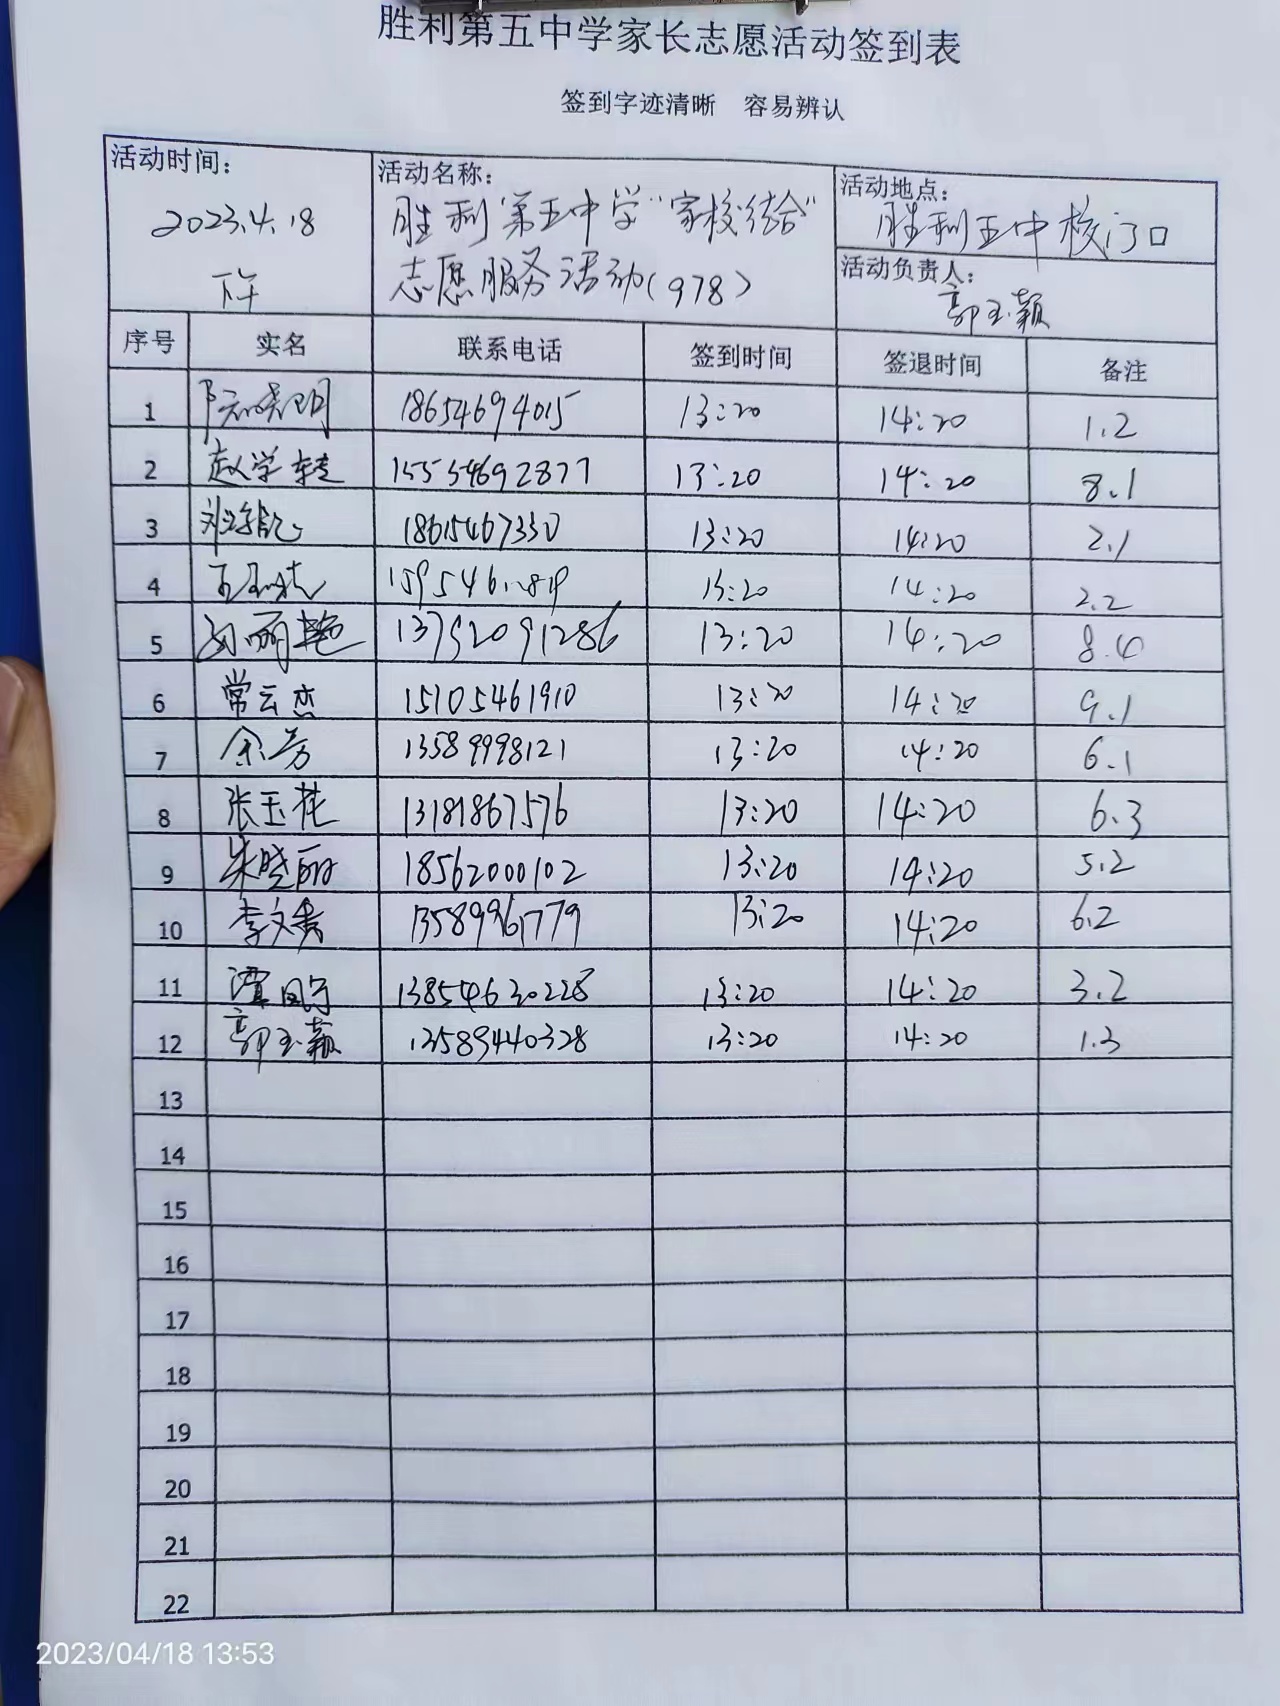 胜利第五中学家长志愿活动签到表
签到字迹清晰 容易辨认
活动时间: 2023.4.18 下午
活动名称: 胜利第五中学"家校结合"志愿服务活动(978)
活动地点: 胜利五中校门口
活动负责人: 郭玉颖
序号 实名 联系电话 签到时间 签退时间 备注
1 18654694015 13:20 14:20 1.2
2 赵学 15554692877 13:20 14:20 8.1
3 18615467330 13:20 14:20 2.1
4 13:20 14:20 2.2
5 丽艳 13792091286 13:20 14:20 8.4
6 常云杰 15105461910 13:20 14:20 9.1
7 余芳 13589998121 13:20 14:20 6.1
8 张玉花 13181867576 13:20 14:20 6.3
9 朱晓丽 18562000102 13:20 14:20 5.2
10 李文秀 13589961779 13:20 14:20 6.2
11 13854630228 13:20 14:20 3.2
12 郭玉颖 13589440328 13:20 14:20 1.3
13
14
15
16
17
18
19
20
21
22
2023/04/18 13:53